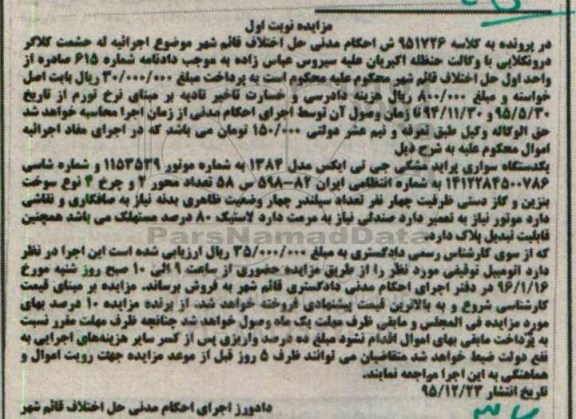 مزایده نوبت اول
در پرونده به کلاسه ۹۵۱۷۲۶ ش احکام مدنی حل اختلاف قائم شهر موضوع اجرائیه له حشمت کلاگر
درونکلایی با وکالت حنظله اکبریان علیه سیروس عباس زاده به موجب دادنامه شماره ۶۱۵ صادره از
واحد اول حل اختلاف قائم شهر محکوم علیه محکوم است به پرداخت مبلغ ۳۰/۰۰۰/۰۰۰ ریال بابت اصل
خواسته و مبلغ ۸۰۰/۰۰۰ ریال هزینه دادرسی و خسارت تاخیر تادیه بر مبنای نرخ تورم از تاریخ
۹۵/۵/۳۰ و ۹۴/۱۱/۳۰ تا زمان وصول آن توسط اجرای احکام مدنی از زمان اجرا محاسبه خواهد شد
حق الوکاله وکیل طبق تعرفه و نیم عشر دولتی ۱۵۰/۰۰۰ تومان می باشد که در اجرای مفاد اجرائیه
اموال محکوم علیه به شرح ذیل
یکدستگاه سواری پراید مشکی جی تی ایکس مدل ۱۳۸۴ به شماره موتور ۱۱۵۳۵۳۹ و شماره شاسی
۱۴۱۲۲۸۴۵۰۰۷۸۶ به شماره انتظامی ایران ۸۲-۵۹۸ س ۵۸ تعداد محور ۲ و چرخ ۴ نوع سوخت
بنزین و گاز دستی ظرفیت چهار نفر تعداد سیلندر چهار وضعیت ظاهری بدنه نیاز به صافکاری و نقاشی
دارد موتور نیاز به تعمیر دارد صندلی نیاز به مرمت دارد لاستیک ۸۰ درصد مستهلک می باشد همچنین
قابلیت تبدیل پلاک دارد.
ParsNamadData
که از سوی کارشناس رسمی دادگستری به مبلغ ۳۵/۰۰۰/۰۰۰ ریال ارزیابی شده است این اجرا در نظر
دارد اتومبیل توقیفی مورد نظر را از طریق مزایده حضوری از ساعت ۹ الی ۱۰ صبح روز شنبه مورخ
۹۶/۱/۱۶ در دفتر اجرای احکام مدنی دادگستری قائم شهر به فروش برساند. مزایده بر مبنای قیمت
کارشناسی شروع و به بالاترین قیمت پیشنهادی فروخته خواهد شد. از برنده مزایده ۱۰ درصد بهای
مورد مزایده فی المجلس و مابقی ظرف مهلت یک ماه وصول خواهد شد چنانچه ظرف مهلت مقرر نسبت
به پرداخت مابقی بهای اموال اقدام نشود مبلغ ده درصد واریزی پس از کسر سایر هزینه‌های اجرایی به
نفع دولت ضبط خواهد شد متقاضیان می توانند ظرف ۵ روز قبل از موعد مزایده جهت رویت اموال و
هماهنگی به این اجرا مراجعه نمایند.
تاریخ انتشار ۹۵/۱۲/۲۳
دادورز اجرای احکام مدنی حل اختلاف قائم شهر